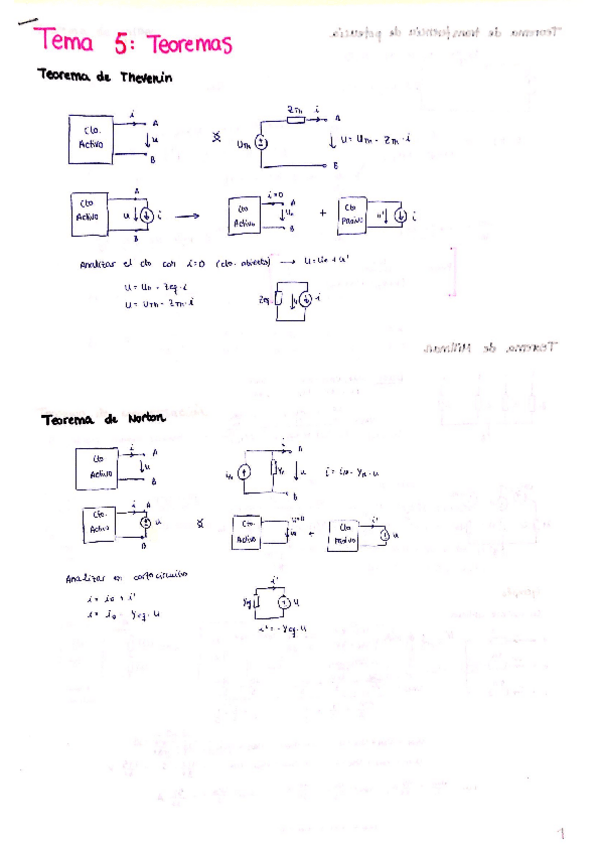 Tema 5: Teoremas
Teorema de Thevenin
Cto. Activo
i
A
u
B
Zth i A
Uth
u = Uth - Zth · i
B
Cto Activo
A
u
i
B
Cto Activo
i=0
A
B
+
Cto Pasivo
u'
i
Analizar el cto con i=0 (cto. abierto) → u = uo + u'
u = uo - Zeq · i
u = Uth - Zth · i
Zeq
u
i
Teorema de Norton
Cto Activo
i
A
u
B
i
A
u
B
Cto. Activo
i
A
u
B
Cto. Activo
u=0
+
Cto Pasivo
i'
u
Analizar en cortocircuito
i = io + i'
i = io - Yeq · u
Yeq
i'
u
i' = - Yeq · u
1